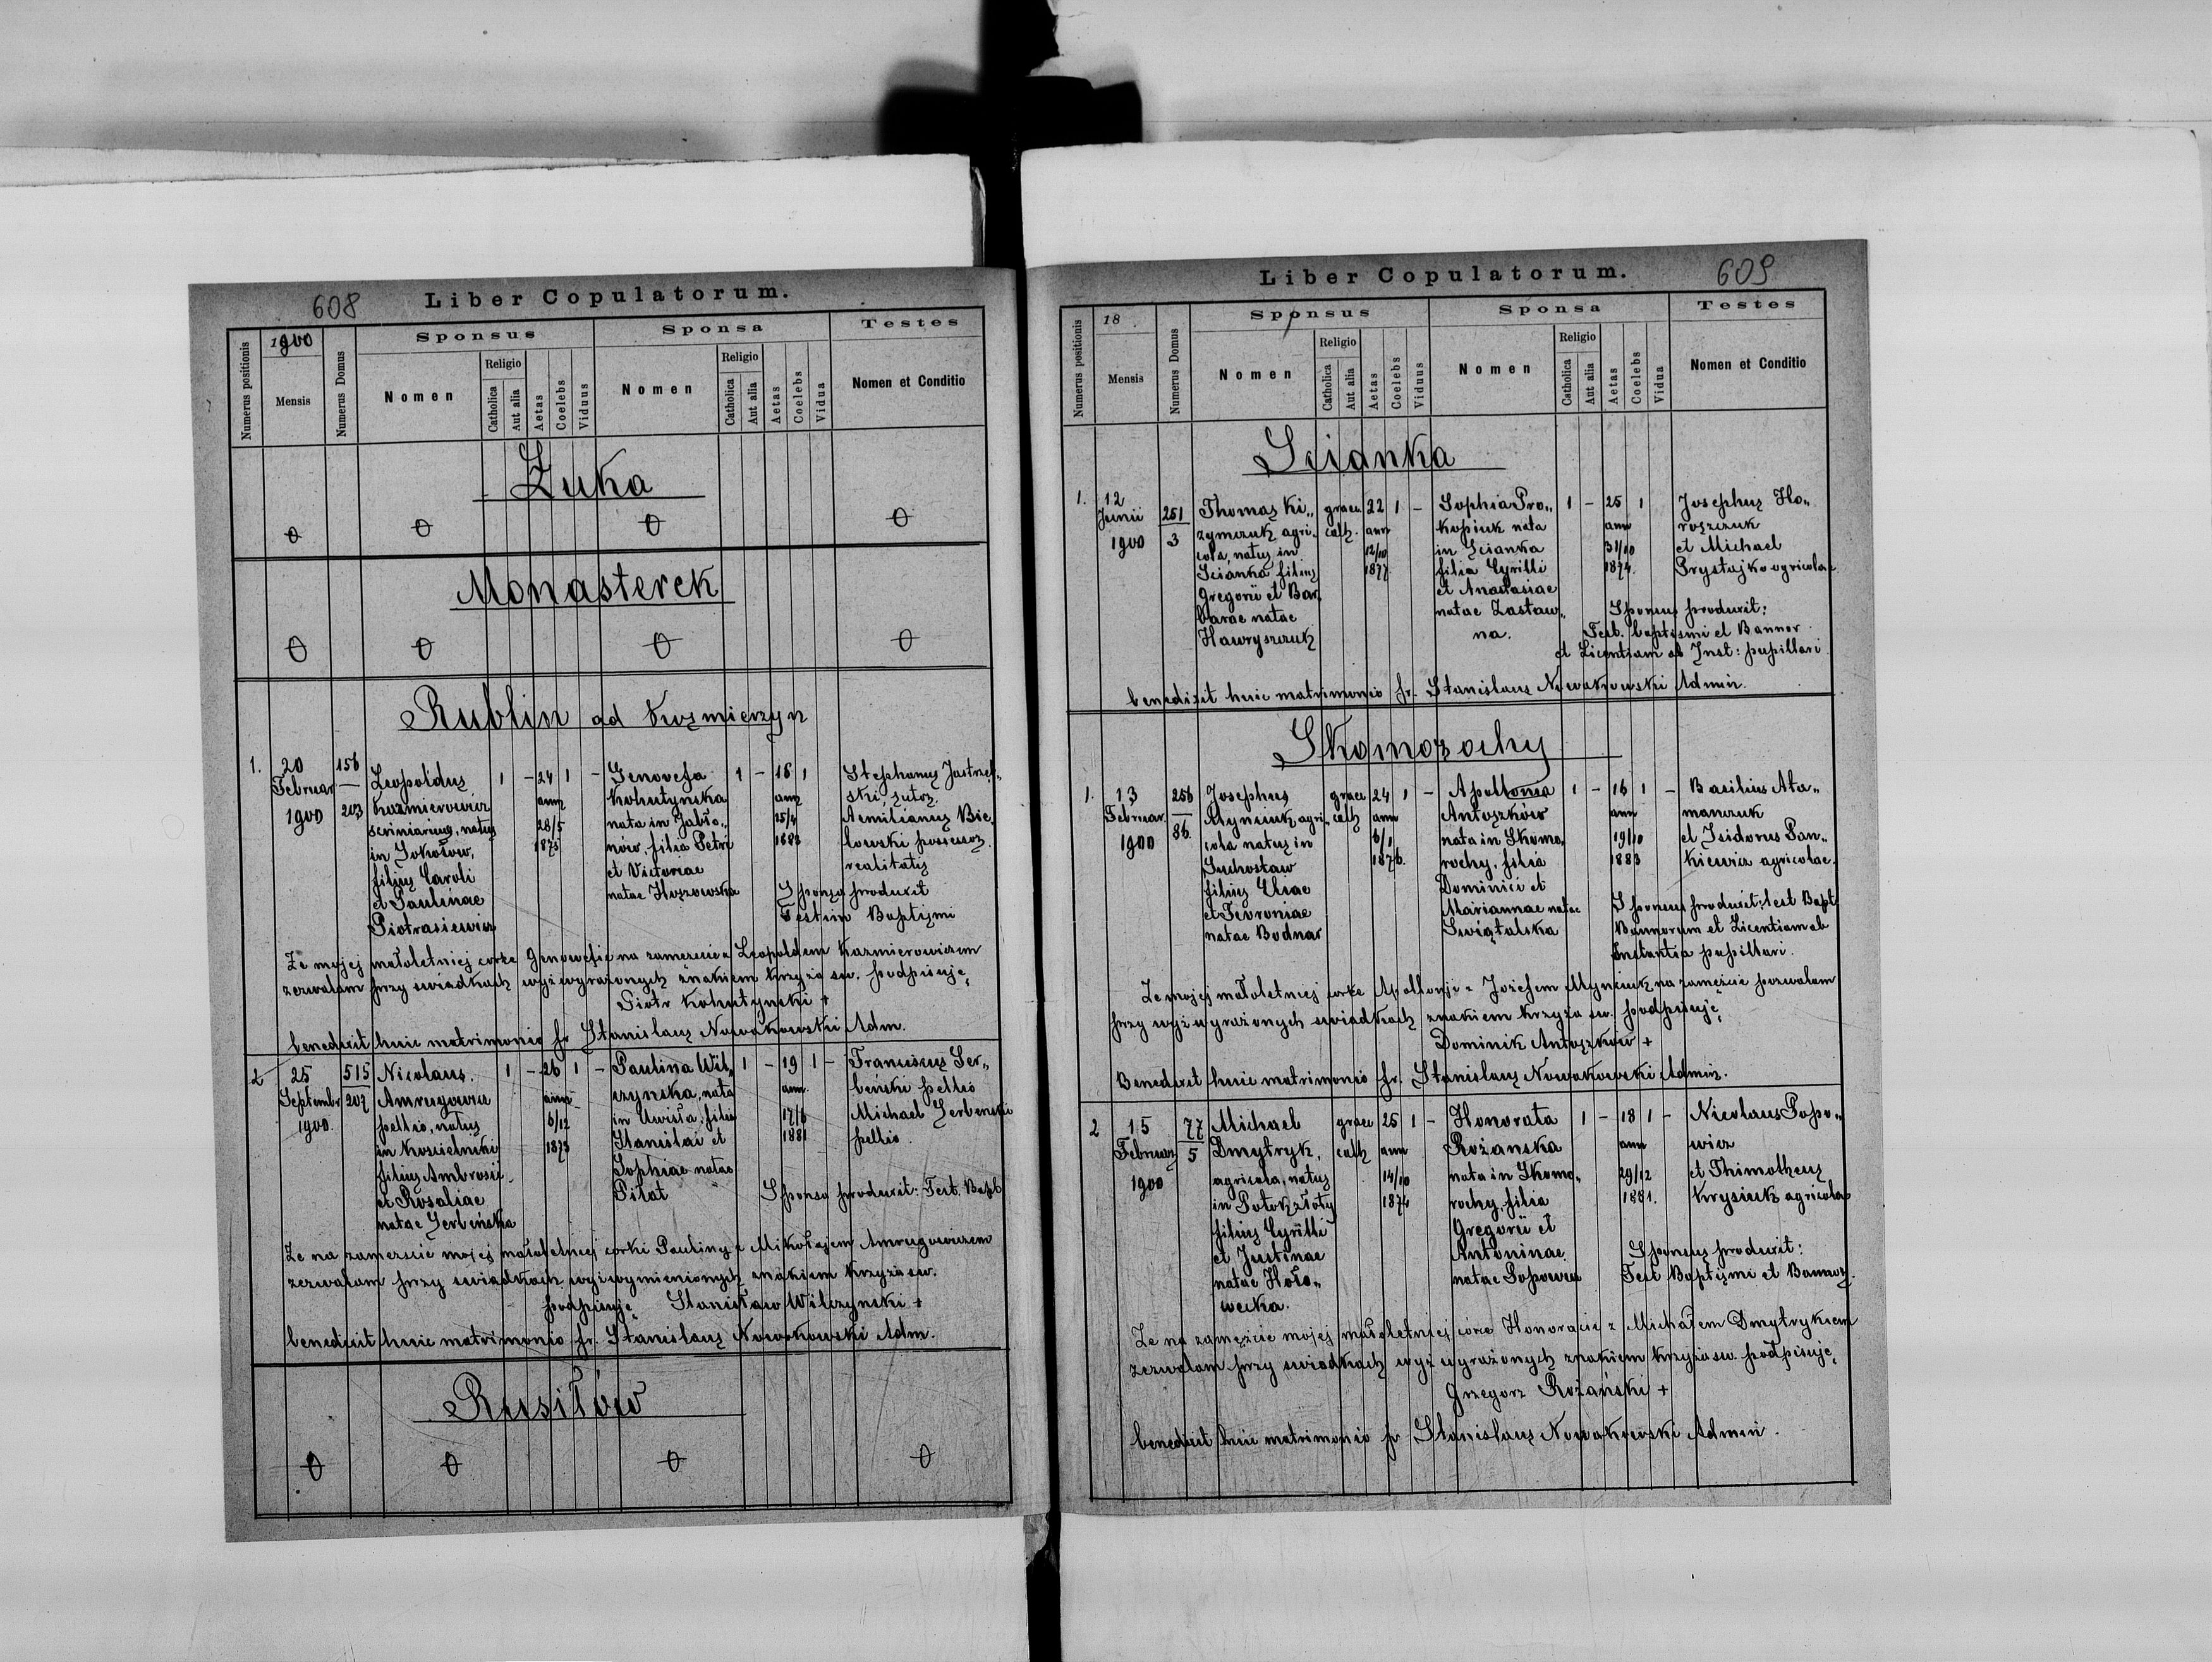 608
Liber Copulatorum.
Numerus positionis
1900
Mensis
Numerus Domus
Sponsus
Nomen
Religio
Catholica
Aut alia
Aetas
Coelebs
Viduus
Sponsa
Nomen
Religio
Catholica
Aut alia
Aetas
Coelebs
Vidua
Testes
Nomen et Conditio
Żuka
Monasterek
Rublin ad Kuzmierzyn
1.
20
Februar
1900
156
203
Leopoldus
Kazmierowicz
scriniarius, natus
in Sokołow,
filius Caroli
et Paulinae
Piotrasiewicz
1 - 24 1 -
ann
28/5
1875
Genovefa
Kohutynska
nata in Jabło„
nów, filia Petri
et Victoriae
natae Hoszowska
1 - 16 1
ann
25/4
1883
Stephanus Jastrzęb„
ski, sutor.
Aemilianus Bie„
lowski possessor
realitatis
Sponsa produxit
Testim Baptismi
Ze mojej małoletniej corke Genowefie na zamezcie z Leopoldem Kazmierowiczem
zezwalam przy swiadkach wyż wyrażonych znakiem krzyża sw. podpisuję
Piotr Kohutynski +
benedixit huic matrimonio fr Stanislaus Nowakowski Adm.
2
25
Septembr
1900.
515
207
Nicolaus
Amrugowicz
pellio, natus
in Koscielniki
filius Ambrosii
et Rosaliae
natae Serbeńska
1 - 26 1 -
ann
6/12
1873
Paulina Wil„
czynska, nata
in Uwisła, filia
Stanislai et
Sophiae natae
Piłat
1 - 19 1 -
ann
17/6
1881
Franciscus Ser„
beński pellio
Michael Serbenski
pellio.
Sponsa produxit: Test. Bapt
Ze na zamezcie mojej małoletniej corki Pauliny z Mikołajem Amrugowiczem
zezwalam przy swiadkach wyż wymienionych znakiem krzyża sw.
podpisuję Stanisław Wilczynski +
benedixit huic matrimonio fr. Stanislaus Nowakowski Adm.
Rusiłów
609
Liber Copulatorum.
Numerus positionis
18
Mensis
Numerus Domus
Sponsus
Nomen
Religio
Catholica
Aut alia
Aetas
Coelebs
Viduus
Sponsa
Nomen
Religio
Catholica
Aut alia
Aetas
Coelebs
Vidua
Testes
Nomen et Conditio
Scianka
1.
12
Junii
1900
251
3
Thomas Ki„
zymczuk agri„
cola, natus in
Scianka filius
Gregorii et Bar„
barae natae
Hawryszczuk
graec
cath.
22 1 -
ann
12/10
1877
Sophia Pro„
kopiuk nata
in Scianka
filia Cyrilli
et Anastasiae
natae Zastaw„
na.
1 - 25 1
ann
31/10
1874.
Josephus Ho„
roszczuk
et Michael
Prystajko agricolae
Sponsus produxit:
Test. baptismi et Bannor
et Licentiam ab Inst: pupillari
benedixit huic matrimonio fr. Stanislaus Nowakowski Admin.
Skomorochy
1.
13
Februar.
1900
256
86.
Josephus
Młyniuk agri„
cola natus in
Suchostaw
filius Eliae
et Fevroniae
natae Bodnar
graec
cath
24 1 -
ann
6/1
1876.
Apollonia
Antoszków
nata in Skomo„
rochy, filia
Dominici et
Mariannae natae
Swiątalska
1 - 16 1 -
ann
19/10
1883
Basilius Ata„
manczuk
et Isidorus Pan„
kiewicz agricolae.
Sponsus produxit: test Bapt
Bannorum et Licentiam ab
Instantia pupillari.
Ze mojej małoletniej corke Apollonji z Jozefem Młyniuk na zamezcie pozwalam
przy wyż wyrażonych swiadkach znakiem krzyża sw. podpisuję
Dominik Antoszków +
Benedixit huic matrimonio fr. Stanislaus Nowakowski Admin.
2
15
Februar
1900
77
5
Michael
Dmytryk,
agricola, natus
in Potok złoty
filius Cyrilli
et Justinae
natae Hoło„
wecka.
graec
cath
25 1 -
ann
14/10
1874
Honorata
Rożanska
nata in Skomo„
rochy, filia
Gregorii et
Antoninae
natae Popowicz
1 - 18 1 -
ann
29/12
1881.
Nicolaus Popo„
wicz
et Thimotheus
Krysiuk agricolae
Sponsus produxit:
Test Baptismi et Bannor.
Ze na zamęzcie mojej małoletniej córce Honoracie z Michałem Dmytrykiem
zezwalam przy swiadkach wyż wyrażonych znakiem krzyża sw. podpisuję
Grzegorz Rożański +
benedixit huic matrimonio fr Stanislaus Nowakowski Admin.